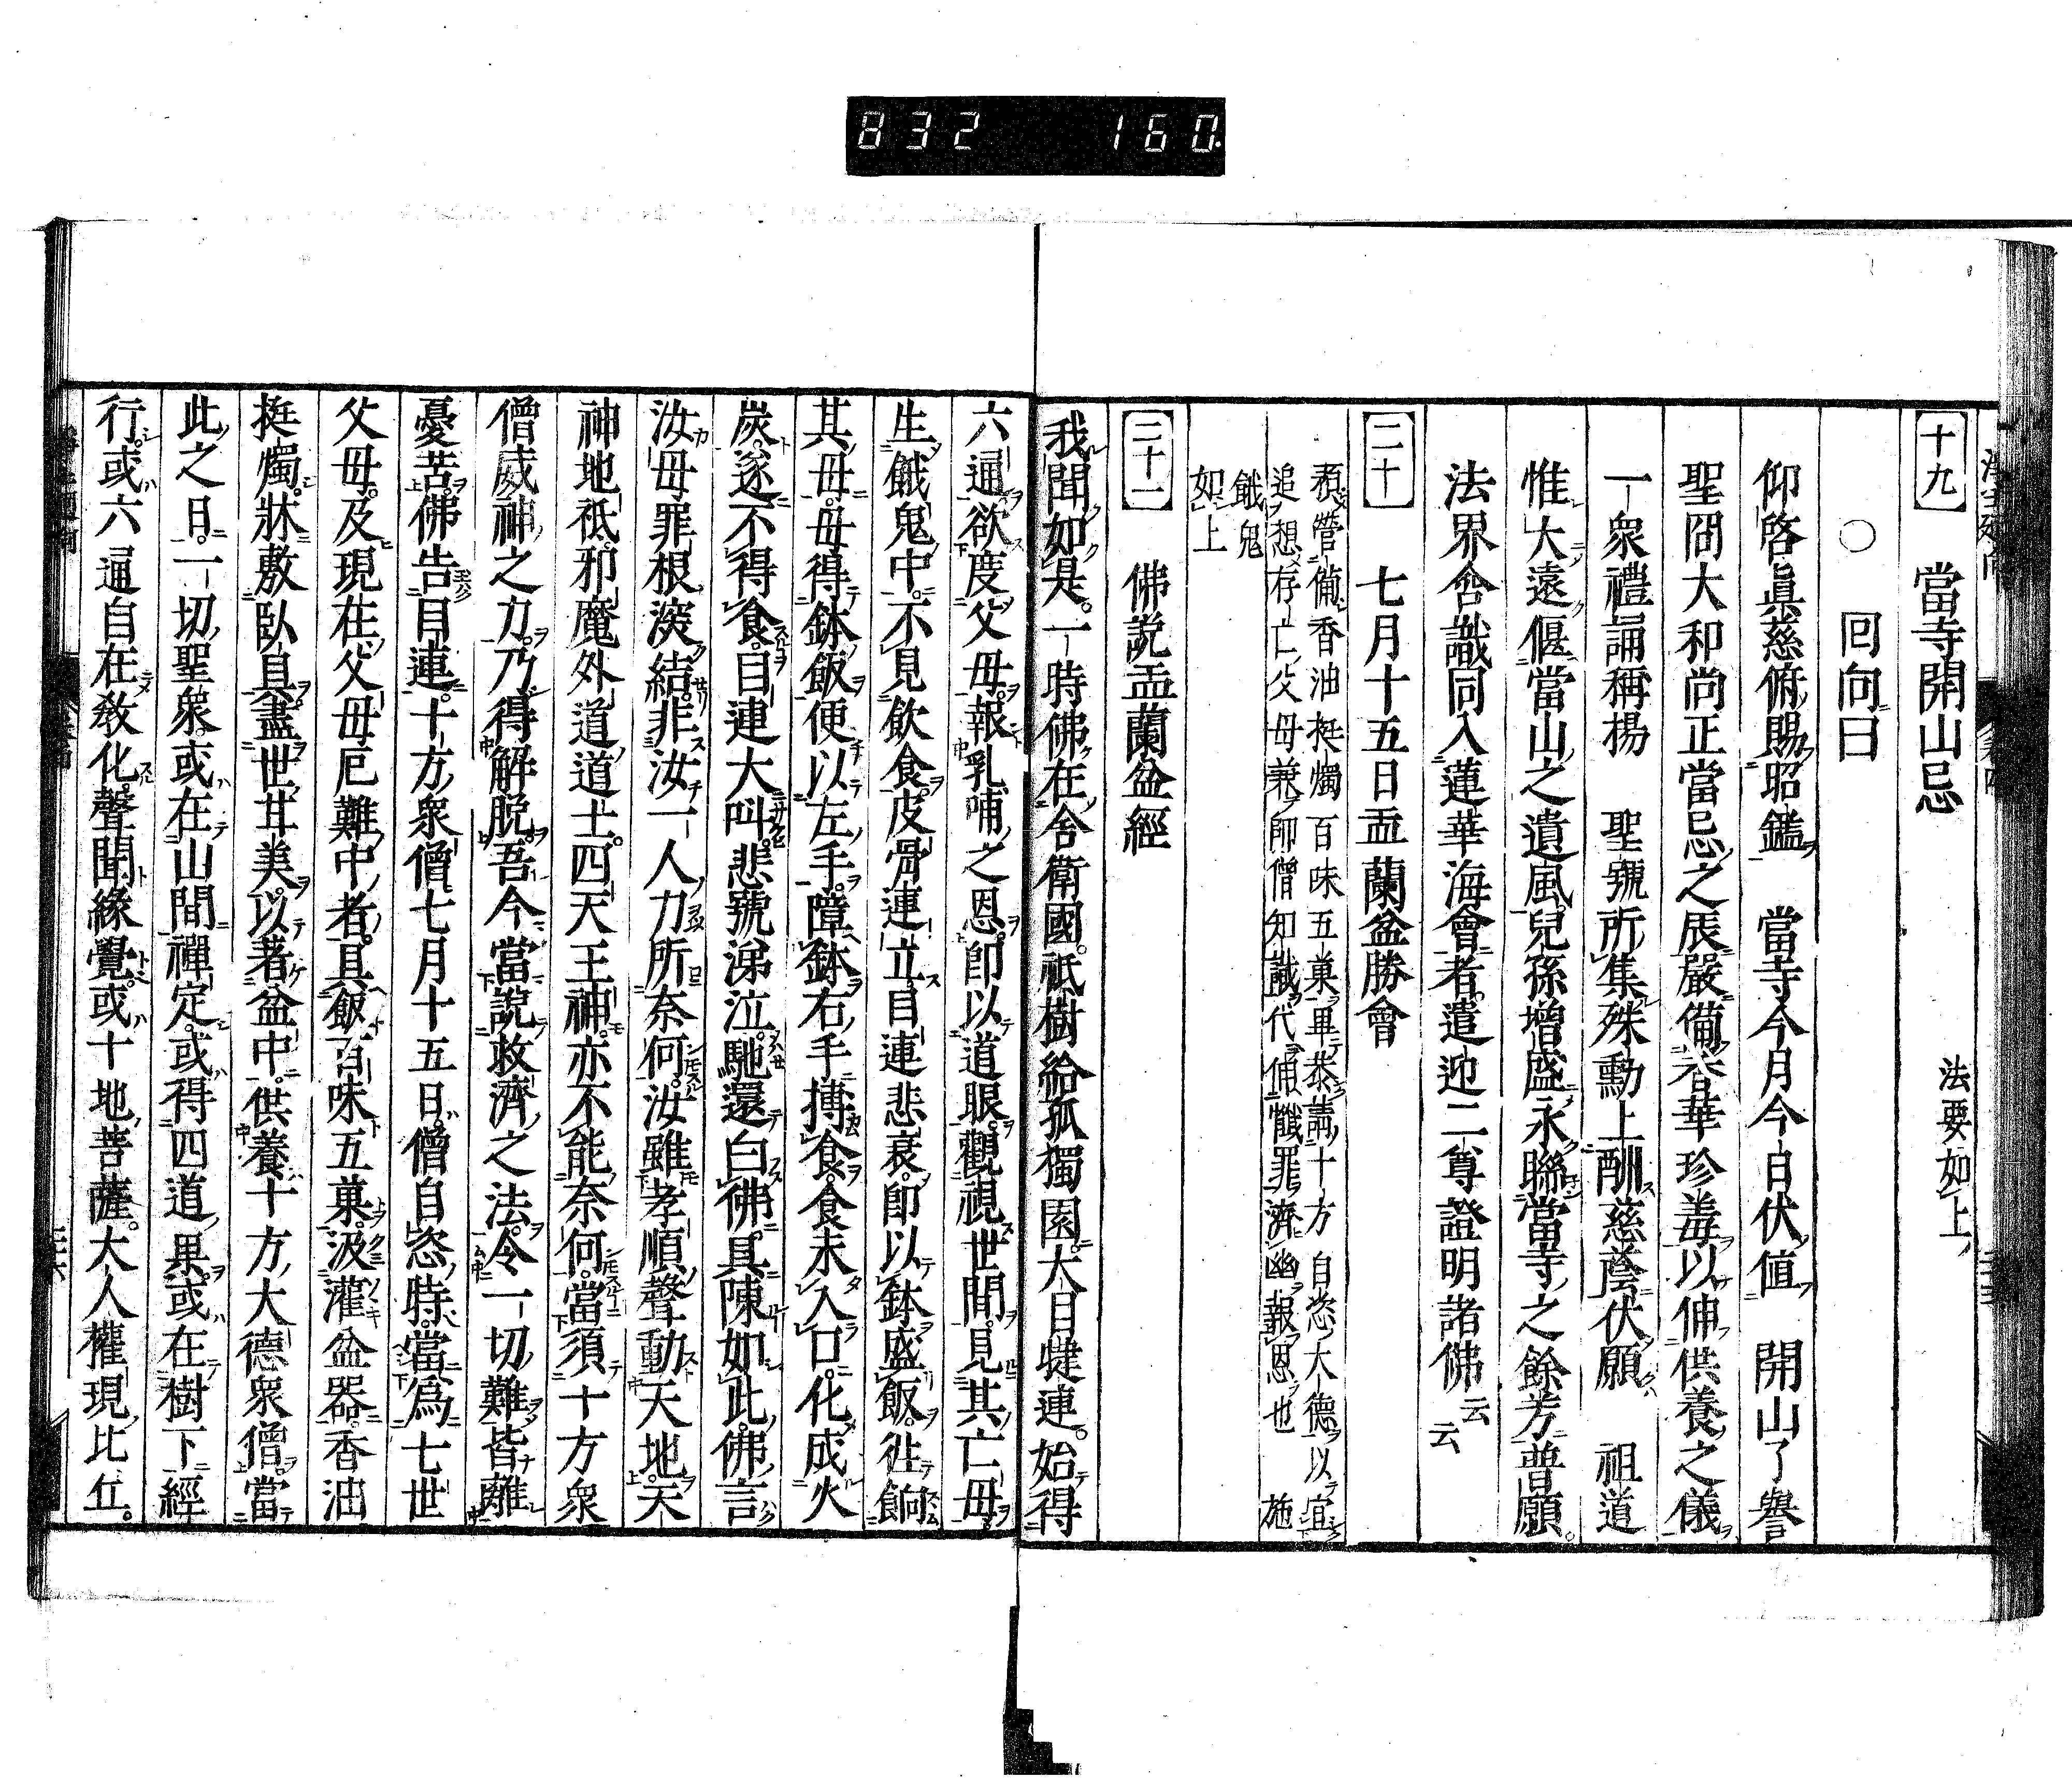 832 160
【十九】 當寺開山忌 法要如上
○ 回向曰
仰啓眞慈俯賜昭鑑 當寺今月今日伏値 開山了譽
聖冏大和尚正當忌之辰嚴備香華珍羞以伸供養之儀
一衆禮誦稱揚 聖號所集殊勳上酬慈蔭伏願 祖道
惟大遠偃當山之遺風兒孫增盛永聯當寺之餘芳普願
法界含識同入蓮華海會者遣迎二尊證明諸佛云云
【二十】 七月十五日盂蘭盆勝會
預營備香油挺燭百味五菓再恭請十方自恣大德以宜
追想存亡父母兼師僧知識代伸懺罪濟幽報恩也 施
餓鬼
如上
【二十一】 佛説盂蘭盆經
我聞如是一時佛在舍衛國祇樹給孤獨園大目犍連始得
六通欲度父母報乳哺之恩卽以道眼觀視世間見其亡母
生餓鬼中不見飮食皮骨連立目連悲哀卽以鉢盛飯徃餉
其母母得鉢飯便以左手障鉢右手摶食食未入口化成火
炭遂不得食目連大叫悲號涕泣馳還白佛具陳如此佛言
汝母罪根深結非汝一人力所奈何汝雖孝順聲動天地天
神地祇邪魔外道道士四天王神亦不能奈何當須十方衆
僧威神之力乃得解脱吾今當説救濟之法令一切難皆離
憂苦佛告目連十方衆僧七月十五日僧自恣時當爲七世
父母及現在父母厄難中者具飯百味五菓汲灌盆器香油
挺燭牀敷臥具盡世甘美以著盆中供養十方大德衆僧當
此之日一切聖衆或在山間禪定或得四道果或在樹下經
行或六通自在敎化聲聞緣覺或十地菩薩大人權現比丘